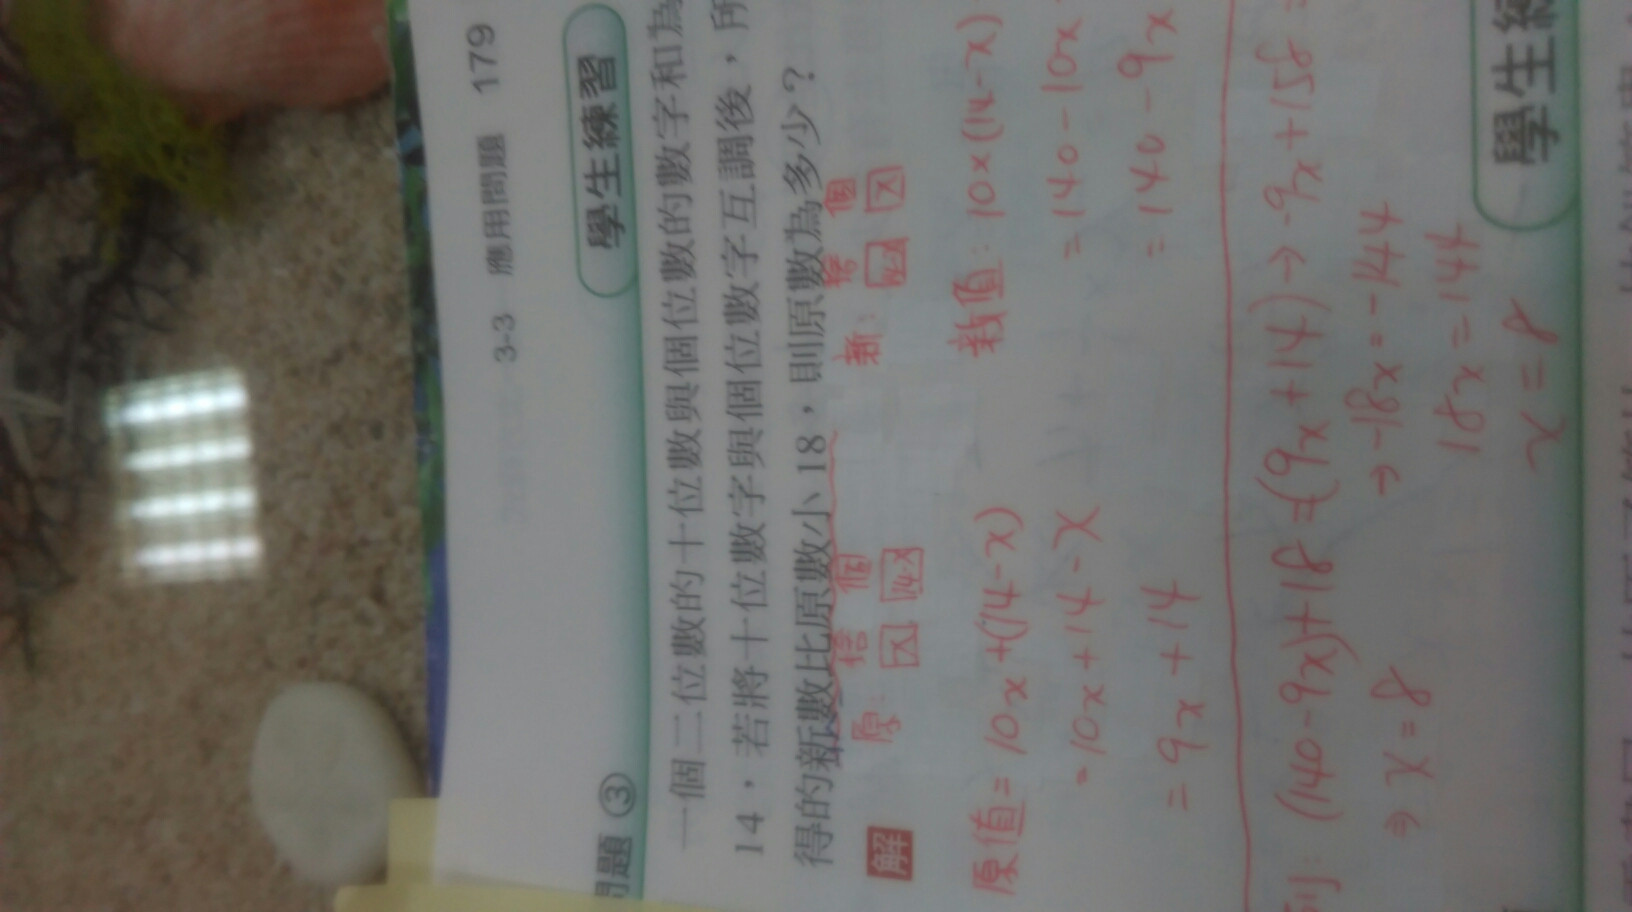 3-3 應用問題 179
問題 ③
學生練習
一個二位數的十位數與個位數的數字和為
14，若將十位數字與個位數字互調後，所
得的新數比原數小 18，則原數為多少？
解
原： 十 個
x 14-x
新： 十 個
14-x x
原值 = 10x+(14-x)
=10x+14-x
= 9x+14
新值： 10×(14-x)
= 140-10x
= 140-9x
列： (140-9x)+18 = (9x+14) → -9x+158 =
→ -18x = -144
18x = 144
x = 8
⇒ x = 8
學生練